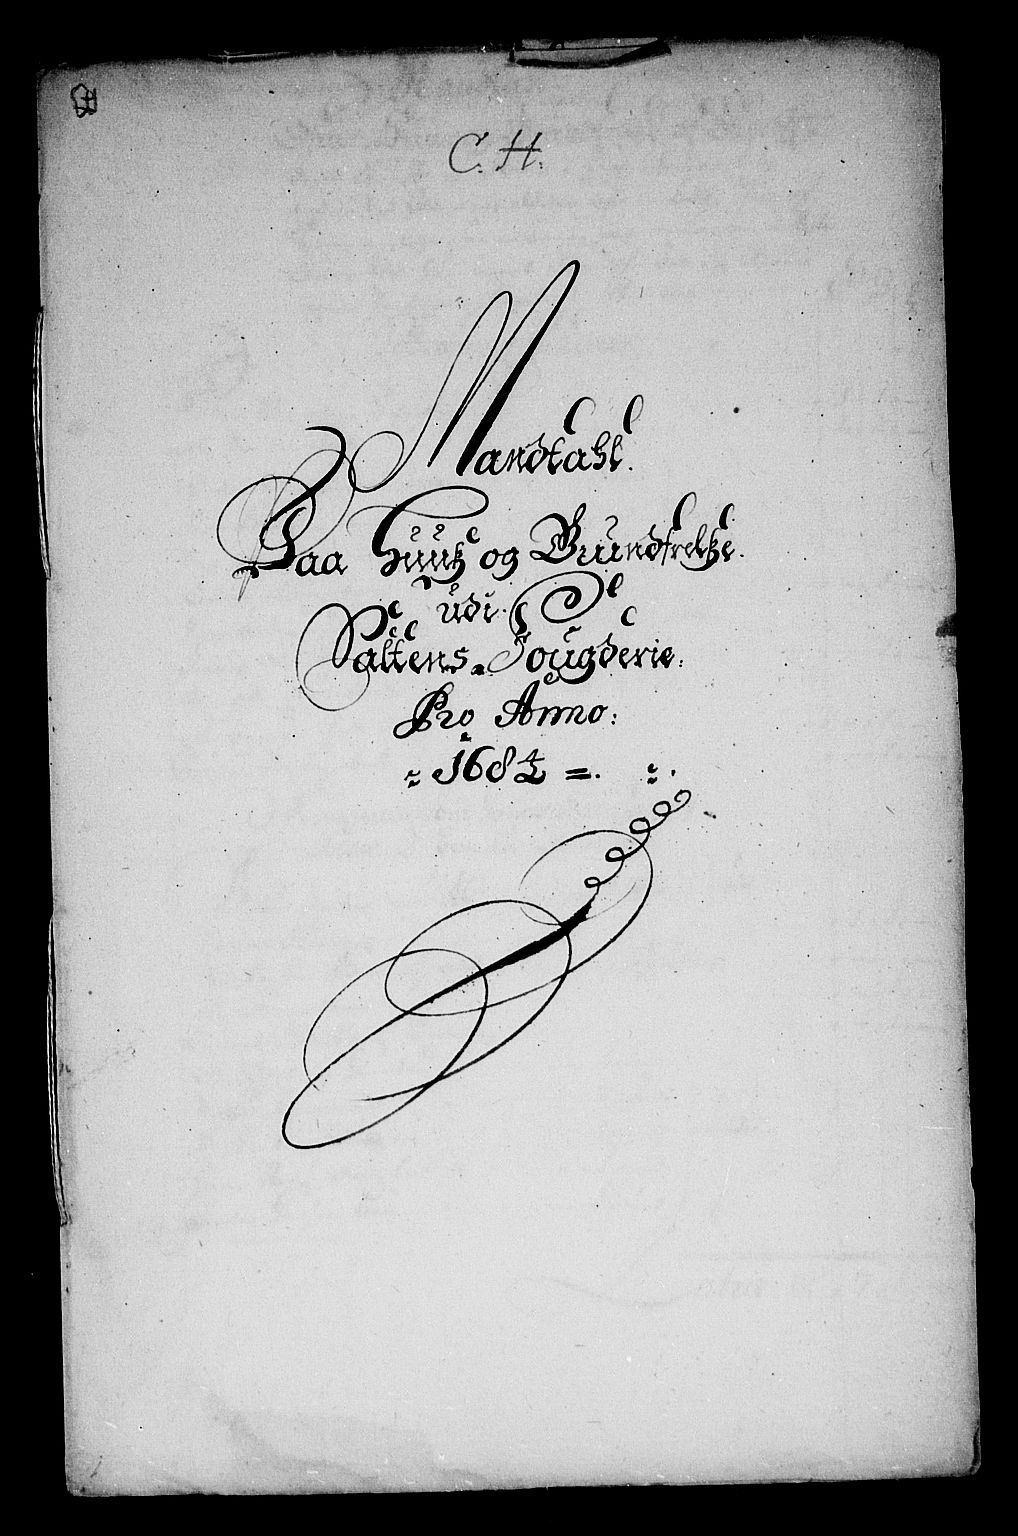 C. H.
Mandtahl.
Paa Huuß og Grundtrelße.
udi
Saltens Fougderie.
Pro Anno:
1684